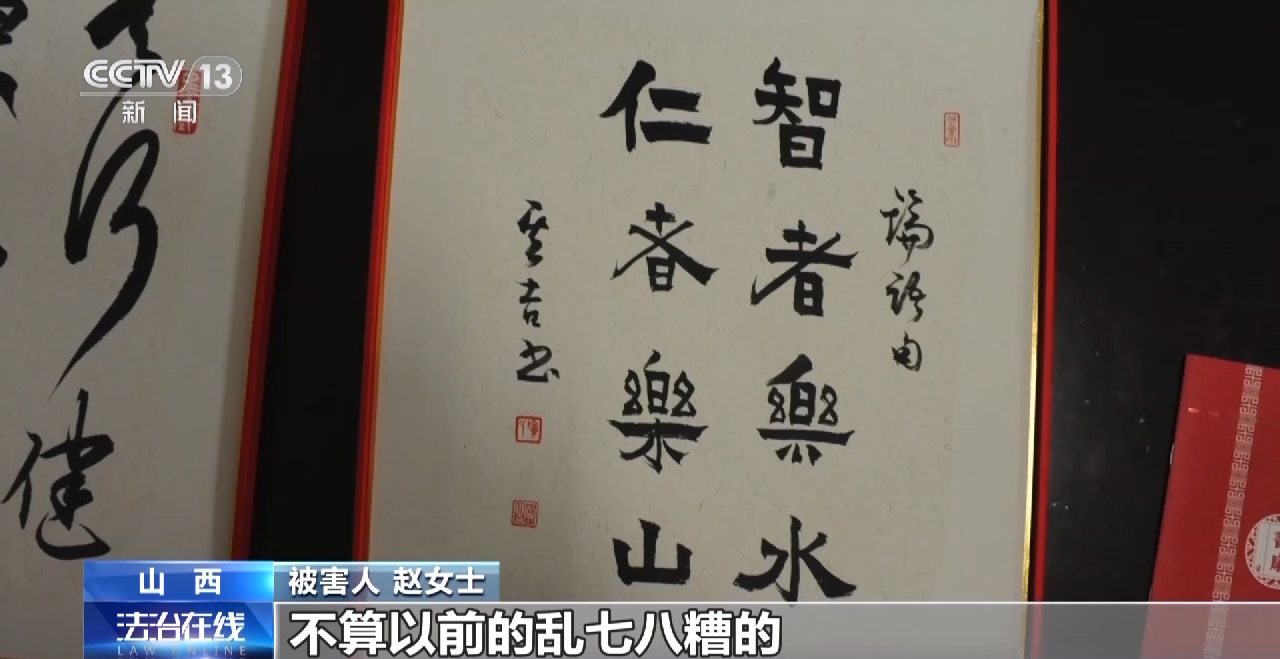 CCTV 13
新闻
論語句
智者樂水
仁者樂山
吉书
健
山西
被害人 赵女士
法治在线
LAW ONLINE
不算以前的乱七八糟的